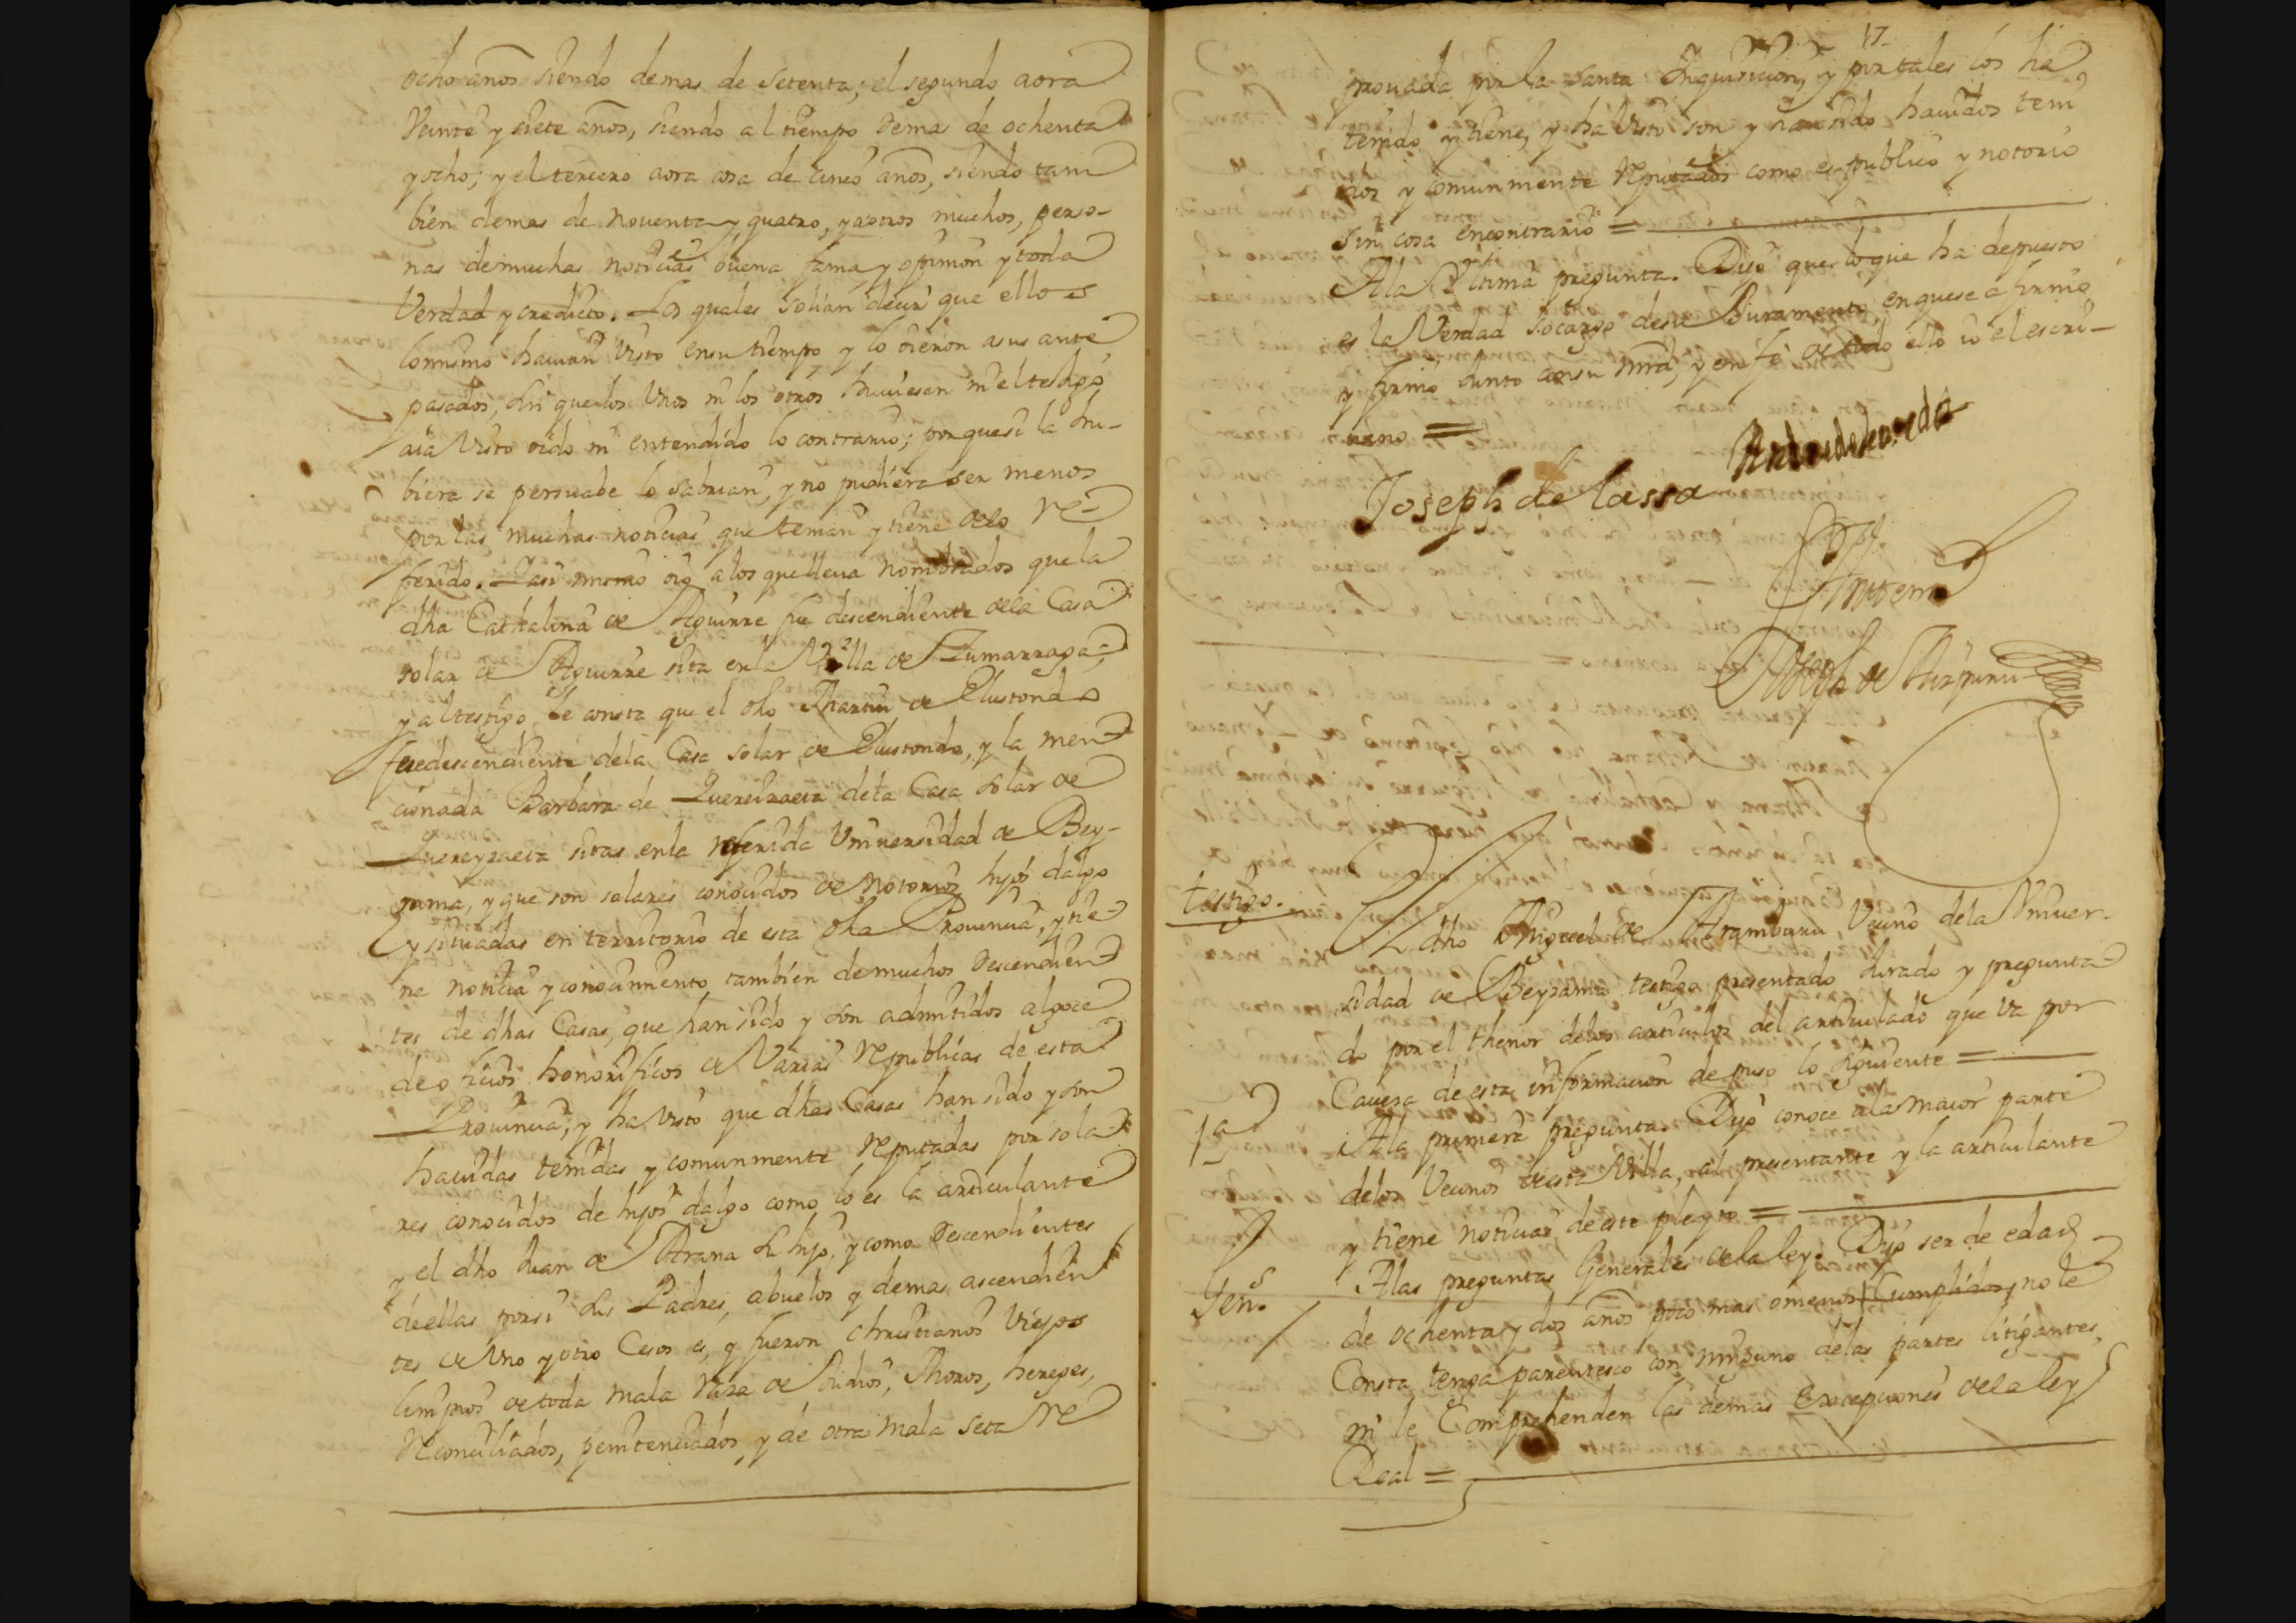 ocho años siendo demas de setenta; el segundo aora
Veinte y siete años, siendo al tiempo demas de ochenta
y ocho; y el tercero aora cosa de cinco años, siendo tam
bien demas de noventa y quatro, y a otros muchos, perso-
nas de muchas noticias buena fama y opinion y toda
Verdad y credito. Los quales solian decir que ello es
lo mismo havian visto en su tiempo y lo oieron a sus ante
pasados, sin que los Unos ni los otros huviesen ni el testigo
aia Visto oido ni entendido lo contrario; porque si la hu-
biera se persuade lo sabrian, y no pudiera ser menos
por las muchas noticias que tenian y tiene de lo re-
ferido. Y asi mismo oio a los que lleva nombrados que la
dha Cathalina de Aguirre fue descendiente de la Casa
solar de Aguirre sita en la Villa de Zumarraga
y al testigo le consta que el dho Martin de Elustondo
fue descendiente de la Casa solar de Elustondo, y la men
cionada Barbara de Quereizaeta de la Casa solar de
Quereyzaeta sitas en la referida Universidad de Bey-
zama, y que son solares conocidos de Notorios hijos dalgo
y situadas en territorio de esta dha Provincia, y tie-
ne noticia y conocimiento tambien de muchos descendien
tes de dhas Casas, que han sido y son admitidos al goce
de oficios honorificos de Varias Republicas de esta
Provincia, y ha visto que dhas Casas han sido y son
havidas tenidas y comunmente reputadas por sola-
res conocidos de hijos dalgo como lo es la articulante
y el dho Juan de Arana su hijo, y como descendientes
de ellas por si sus Padres, abuelos y demas ascendien
tes de Uno y otro Cesos es, y fueron christianos viejos
limpios de toda mala raza de Judios, Moros, hereges,
Reconciliados, penitenciados, y de otra mala seta re
17
provada por la Santa Inquisicion, y por tales los ha
tenido y tiene, y ha visto son y han sido havidos teni
dos y comunmente reputados como es publico y notorio
sin cosa en contrario =
A la Ultima pregunta. Dijo que lo que ha depuesto
es la Verdad so cargo de su Juramento, en que se afirmo
y firmo Junto con su mrd, y en fe de todo ello io el escri-
vano =
Joseph de lassa
Antemi
Joseph de Aizpuru
testigo.
El dho Miguel de Aramburu, Vecino de la Univer-
sidad de Beyzama testigo presentado Jurado y pregunta
do por el thenor de los articulos del articulado que va por
Cavesa de esta informacion depuso lo siguiente =
1ª
A la primera pregunta. Dijo conoce a la maior parte
de los Vecinos de esta Villa, al presentante y la articulante
y tiene noticias de este pleyto =
Gens.
A las preguntas Generales de la ley. Dijo ser de edad
de ochenta y dos años poco mas o menos Cumplidos, no le
Consta tenga parentesco con ninguno de las partes litigantes,
ni le Comprehenden las demas Excepciones de la ley
Real =